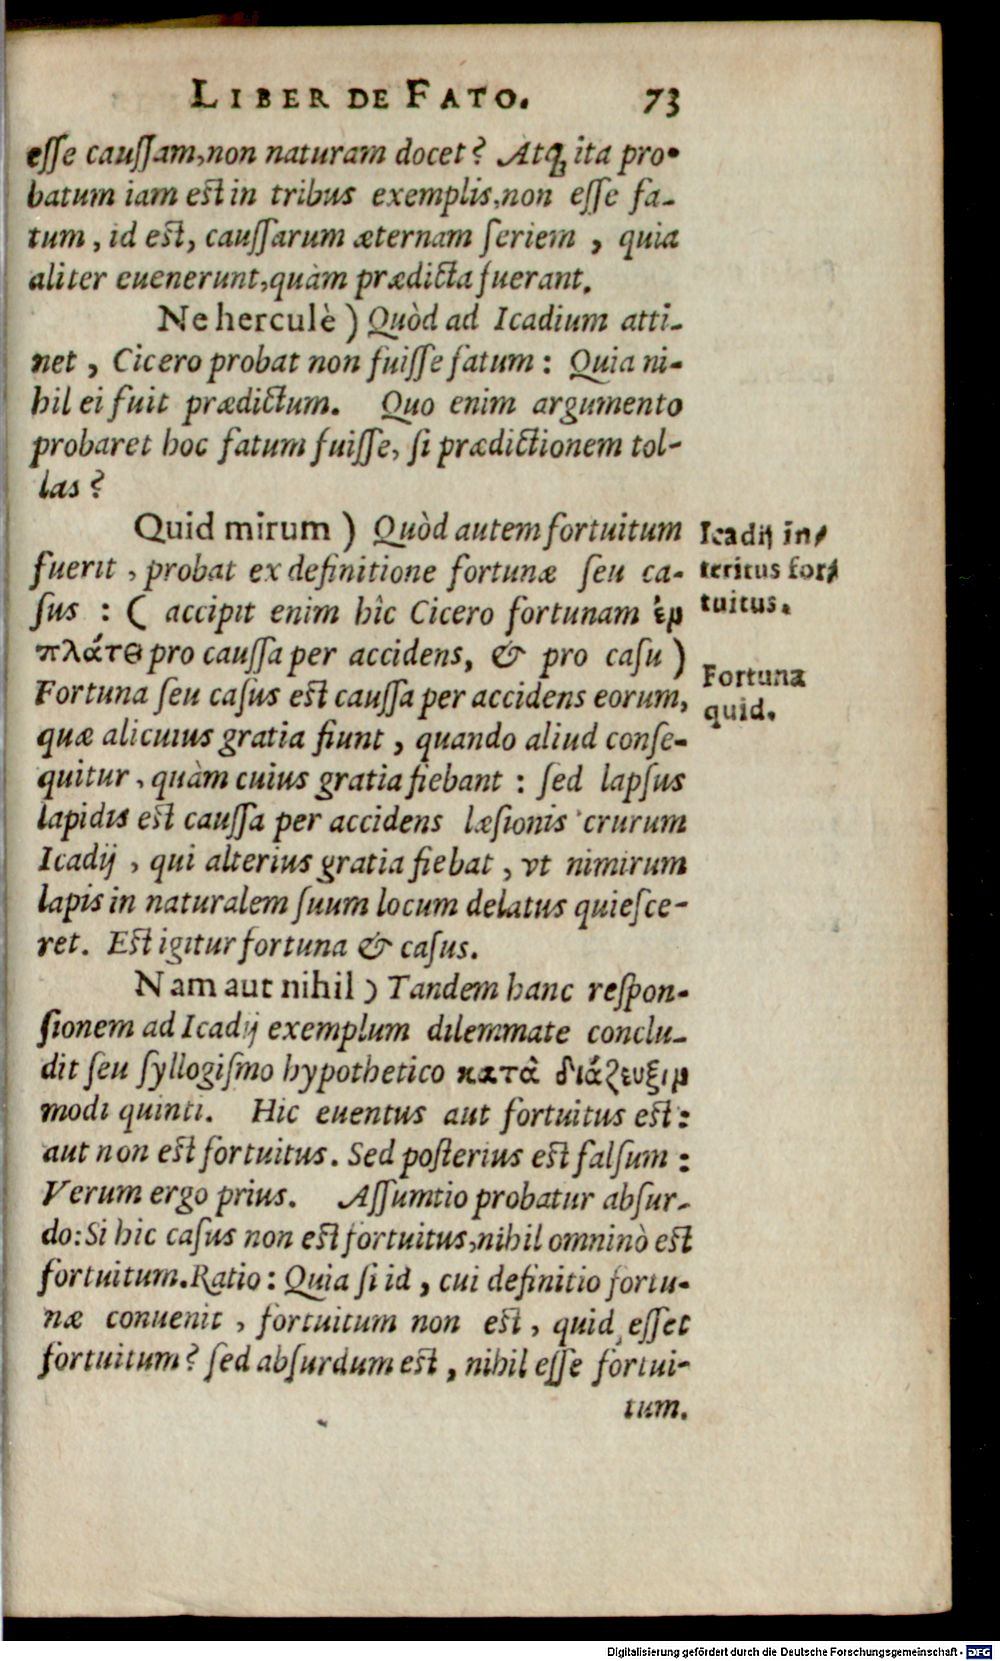 LIBER DE FATO. 73
esse caussam, non naturam docet? Atq; ita pro-
batum iam est in tribus exemplis, non esse fa-
tum, id est, caussarum æternam seriem, quia
aliter euenerunt, quàm prædicta fuerant.
Ne herculè) Quòd ad Icadium atti-
net, Cicero probat non fuisse fatum: Quia ni-
hil ei fuit prædictum. Quo enim argumento
probaret hoc fatum fuisse, si prædictionem tol-
las?
Quid mirum) Quòd autem fortuitum
fuerit, probat ex definitione fortunæ seu ca-
sus: ( accipit enim hîc Cicero fortunam ἐν
πλάτει pro caussa per accidens, & pro casu )
Fortuna seu casus est caussa per accidens eorum,
quæ alicuius gratia fiunt, quando aliud conse-
quitur, quàm cuius gratia fiebant: sed lapsus
lapidis est caussa per accidens læsionis crurum
Icadij, qui alterius gratia fiebat, vt nimirum
lapis in naturalem suum locum delatus quiesce-
ret. Est igitur fortuna & casus.
Nam aut nihil) Tandem hanc respon-
sionem ad Icadij exemplum dilemmate conclu-
dit seu syllogismo hypothetico κατὰ διάζευξιν
modi quinti. Hic euentus aut fortuitus est:
aut non est fortuitus. Sed posterius est falsum:
Verum ergo prius. Assumtio probatur absur-
do: Si hic casus non est fortuitus, nihil omninò est
fortuitum. Ratio: Quia si id, cui definitio fortu-
næ conuenit, fortuitum non est, quid esset
fortuitum? sed absurdum est, nihil esse fortui-
tum.
Icadij in-
teritus for-
tuitus.
Fortuna
quid.
Digitalisierung gefördert durch die Deutsche Forschungsgemeinschaft - DFG